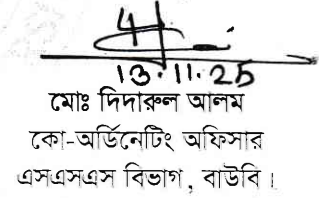 13.11.25
মোঃ দিদারুল আলম
কো-অর্ডিনেটিং অফিসার
এসএসএস বিভাগ, বাউবি।